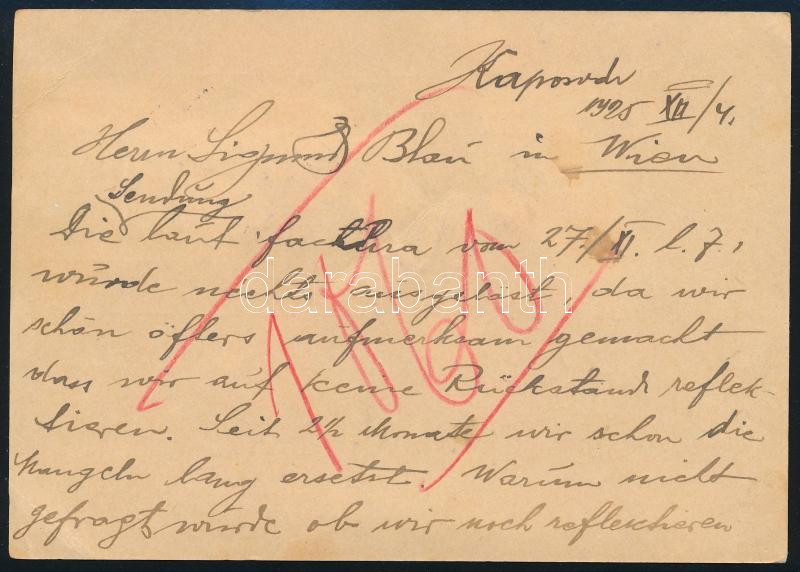 Kaposvár
1925 XII/4.
Herrn Sigmund Blau in Wien
Sendung
Die laut factura vom 27./XI. l. J.,
wurde nichts ausgelöst, da wir
schon öfters aufmerksam gemacht
dass wir auf keine Rückstand reflek-
tieren. Seit 2½ Monate wir schon die
Mangeln lang ersetzt. Warum nicht
gefragt wurde ob wir noch reflektieren
darabanth